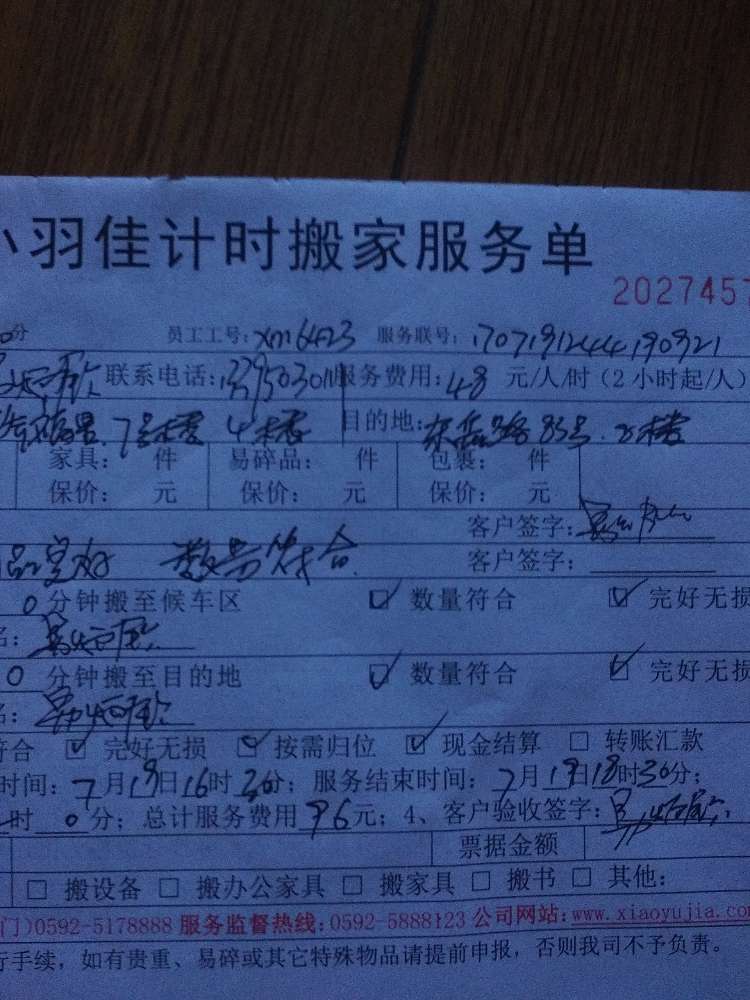 小羽佳计时搬家服务单
2027457
分 员工工号：xm6423 服务联号：17071912444190921
联系电话： 服务费用：48 元/人/时（2小时起/人）
7号楼 4楼 目的地： 83号
家具： 件 易碎品： 件 包裹： 件
保价： 元 保价： 元 保价： 元
客户签字：
品完好 数量符合 客户签字：
0分钟搬至候车区 ☑ 数量符合 ☑ 完好无损
名：
0 分钟搬至目的地 ☑ 数量符合 ☑ 完好无损
名：
符合 ☑ 完好无损 ☑ 按需归位 ☑ 现金结算 □ 转账汇款
时间：7月19日16时30分；服务结束时间：7月19日18时30分；
时 0 分；总计服务费用 96元；4、客户验收签字：
票据金额
□ 搬设备 □ 搬办公家具 □ 搬家具 □ 搬书 □ 其他：
门)0592-5178888 服务监督热线：0592-5888123 公司网站：www.xiaoyujia.com
行手续，如有贵重、易碎或其它特殊物品请提前申报，否则我司不予负责。